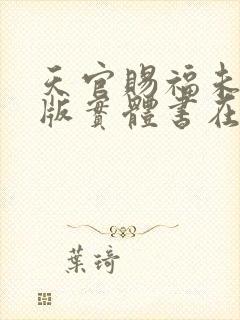 天官賜福未
版實體書在
葉琦